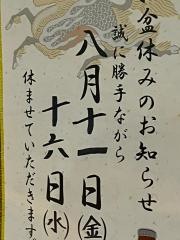 盆休みのお知らせ
誠に勝手ながら
八月十一日㈮
十六日㈬
休ませていただきます